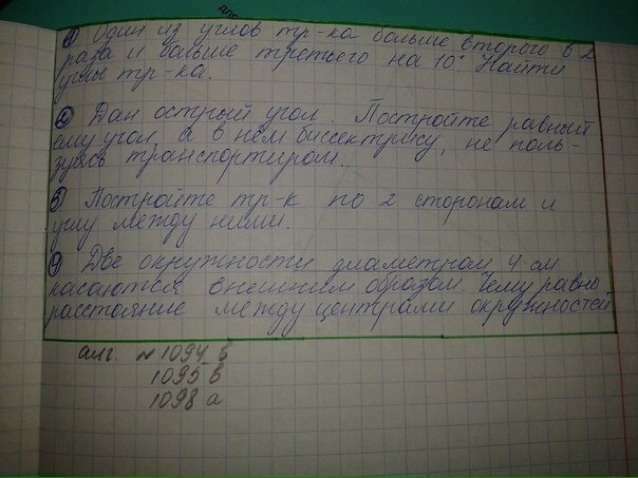 1) Один из углов тр-ка больше второго в 2
раза и больше третьего на 10° Найти
углы тр-ка.
2) Дан острый угол. Постройте равный
ему угол, а в нем биссектрису, не поль-
зуясь транспортиром.
3) Постройте тр-к по 2 сторонам и
углу между ними.
4) Две окружности диаметром 4 см
касаются внешним образом. Чему равно
расстояние между центрами окружностей
алг. №1094 б
1095 в
1098 а